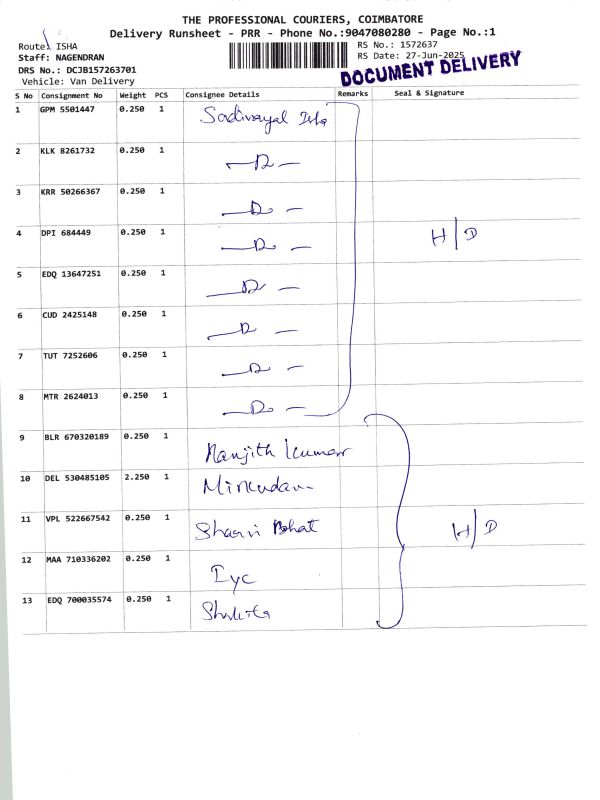 THE PROFESSIONAL COURIERS, COIMBATORE
Delivery Runsheet - PRR - Phone No.:9047080280 - Page No.:1
Route: ISHA
RS No.: 1572637
Staff: NAGENDRAN
RS Date: 27-Jun-2025
DRS No.: DCJB157263701
DOCUMENT DELIVERY
Vehicle: Van Delivery
S No Consignment No Weight PCS Consignee Details Remarks Seal & Signature
1 GPM 5501447 0.250 1 Sadivayal
2 KLK 8261732 0.250 1 — D —
3 KRR 50266367 0.250 1 — D —
4 DPI 684449 0.250 1 — D — H/D
5 EDQ 13647251 0.250 1 — D —
6 CUD 2425148 0.250 1 — D —
7 TUT 7252606 0.250 1 — D —
8 MTR 2624013 0.250 1 — D —
9 BLR 670320189 0.250 1 Ranjith kumar
10 DEL 530485105 2.250 1
11 VPL 522667542 0.250 1 H/D
12 MAA 710336202 0.250 1 Iyc
13 EDQ 700035574 0.250 1